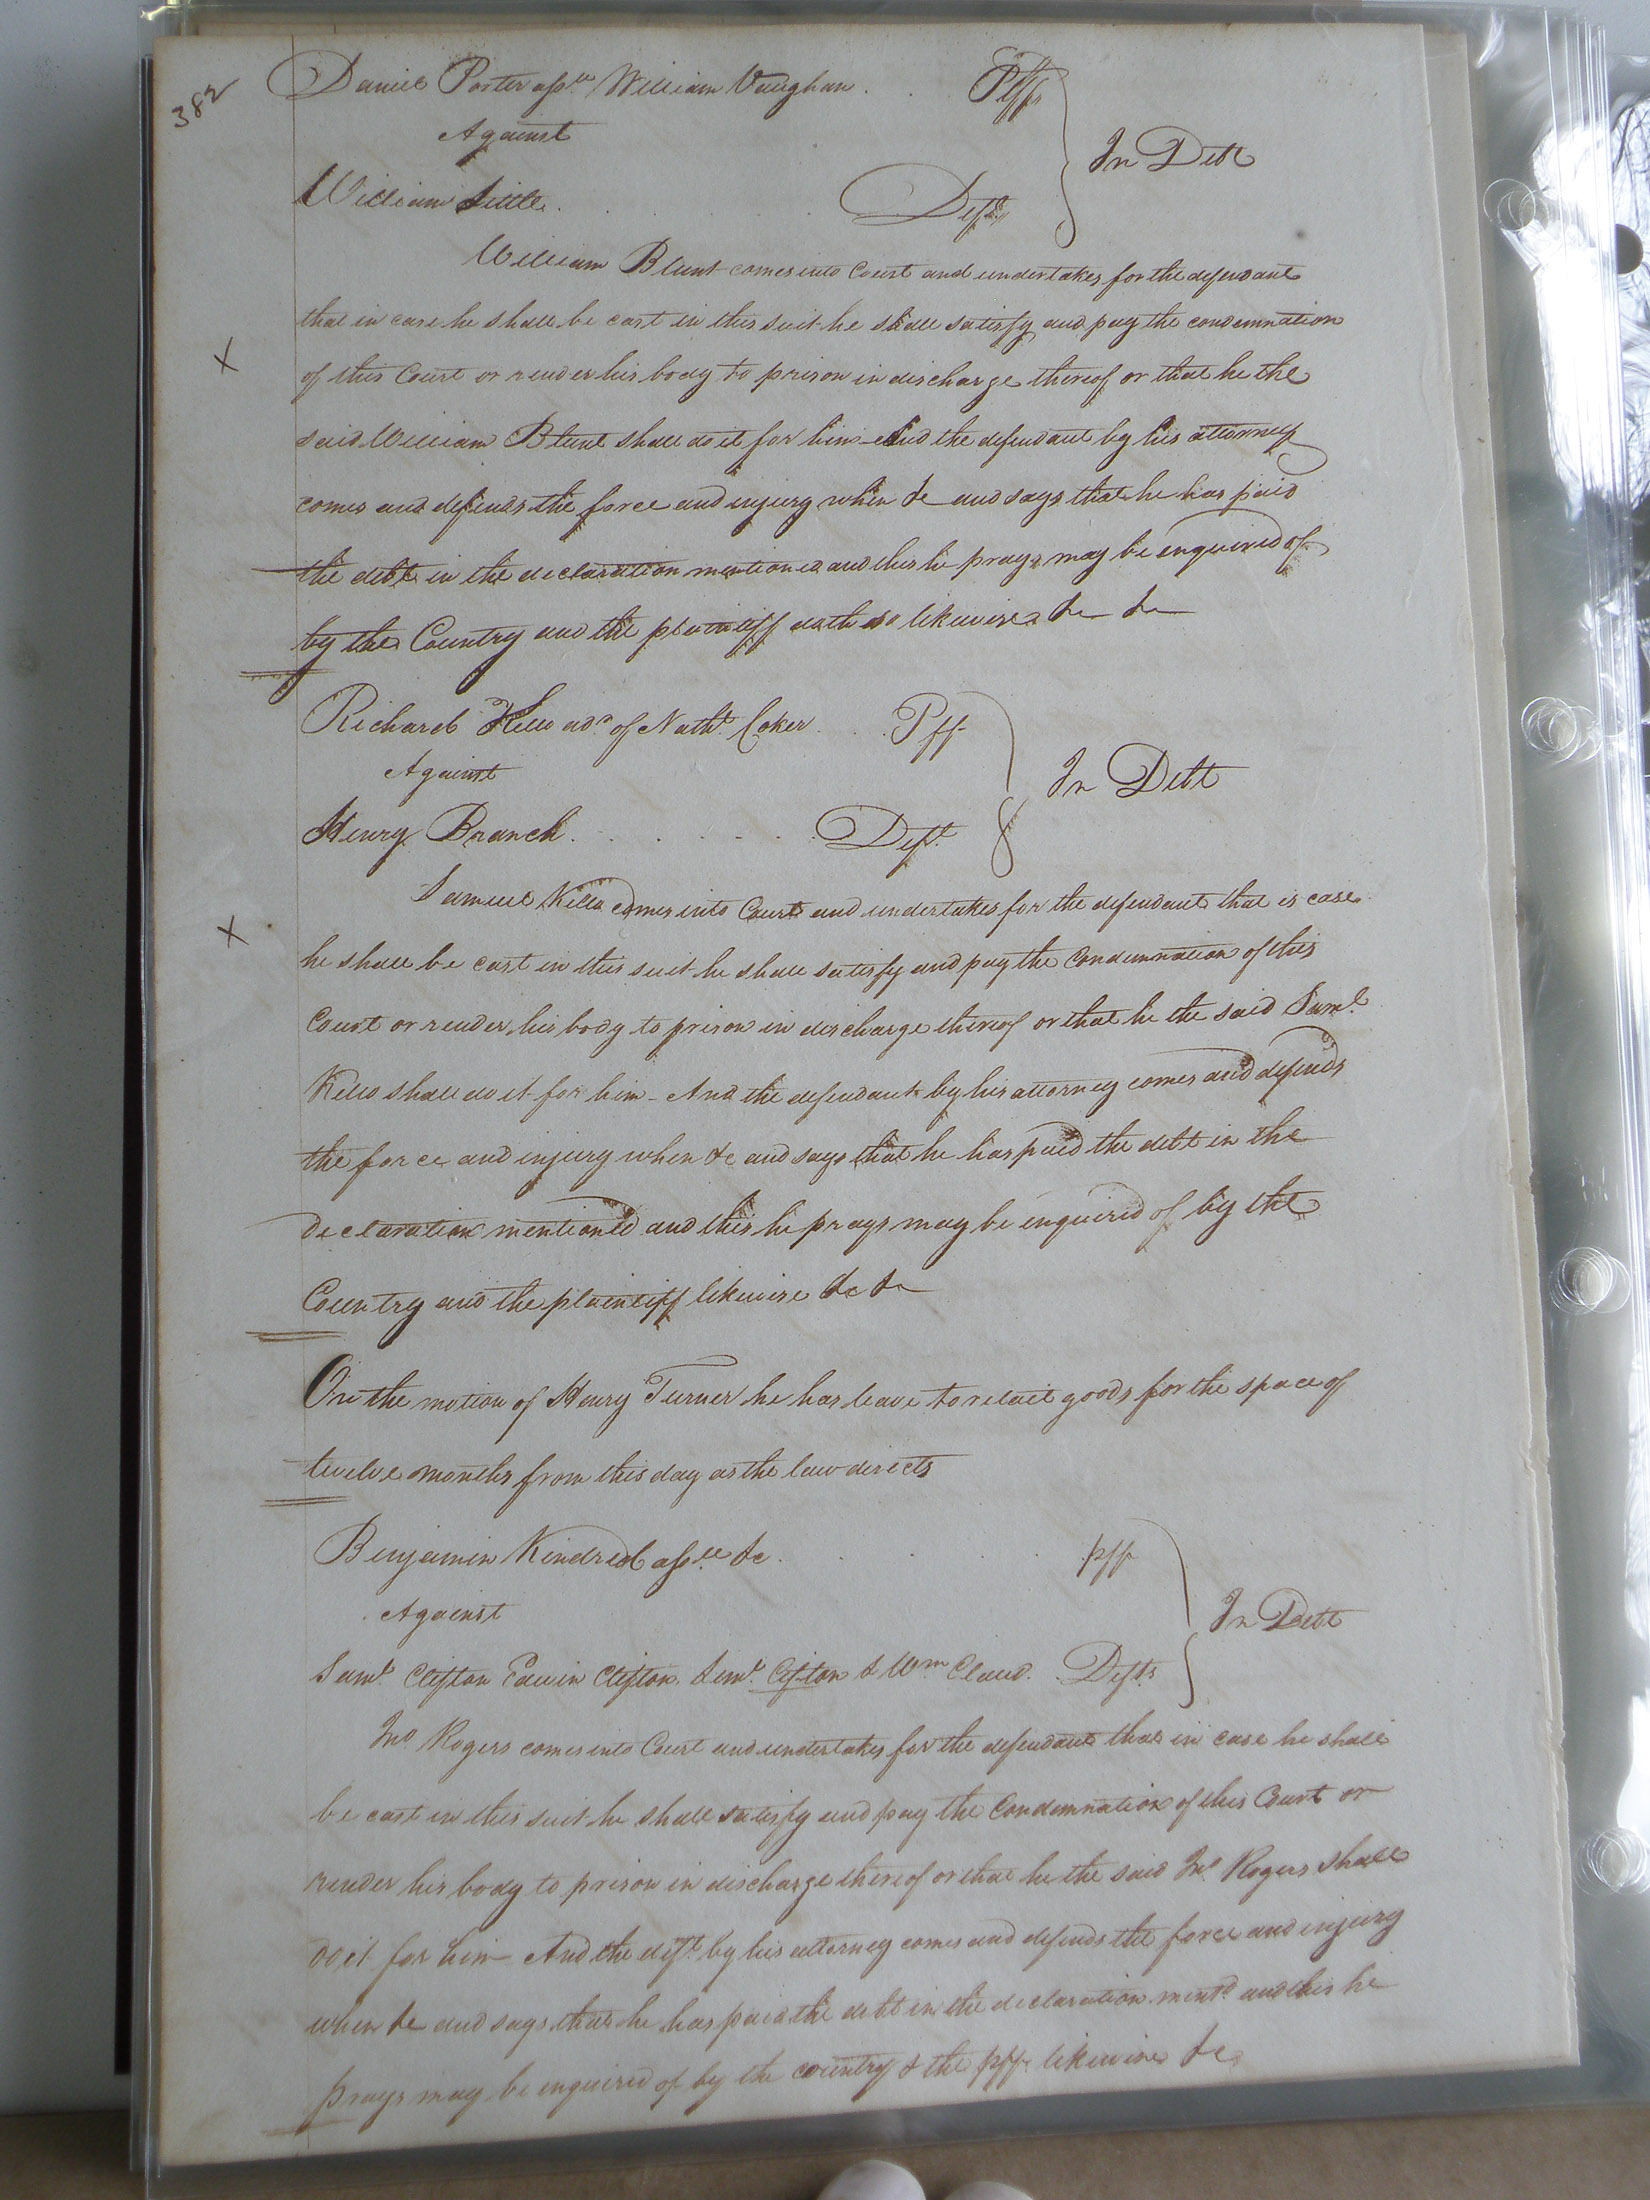 382
Daniel Porter assee William Vaughan . . Plff
Against
In Debt
William Little . . . . Deft
William Blunt comes into Court and undertakes for the defendant
that in case he shall be cast in this suit he shall satisfy and pay the condemnation
X
of this Court or render his body to prison in discharge thereof or that he the
said William Blunt shall do it for him And the defendant by his attorney
comes and defends the force and injury when &c and says that he has paid
the debt in the declaration mentioned and this he prays may be enquired of
by the Country and the plaintiff doth so likewise &c &c
Richard Kello adr of Nathl Coker . . Pff
Against
In Debt
Henry Branch . . . . . Deft
Samuel Kello comes into Court and undertakes for the defendant that is case
X
he shall be cast in this suit he shall satisfy and pay the Condemnation of this
Court or render his body to prison in discharge thereof or that he the said Saml
Kello shall do it for him - And the defendant by his attorney comes and defends
the force and injury when &c and says that he has paid the debt in the
declaration mentioned and this he prays may be enquired of by the
Country and the plaintiff likewise &c &c
On the motion of Henry Turner he has leave to retail goods for the space of
twelve months from this day as the law directs
Benjamin Kindred assee &c . . . pff
Against
In Debt
Saml Clifton Edwin Clifton, Saml Clifton & Wm Claud . Defts
Jno Rogers comes into Court and undertakes for the defendant that in case he shall
be cast in this suit he shall satisfy and pay the Condemnation of this Court or
render his body to prison in discharge thereof or that he the said Jno Rogers shall
do it for him - And the deft by his attorney comes and defends the force and injury
when &c and says that he has paid the debt in the declaration mentd and this he
prays may be enquired of by the country & the pff likewise &c